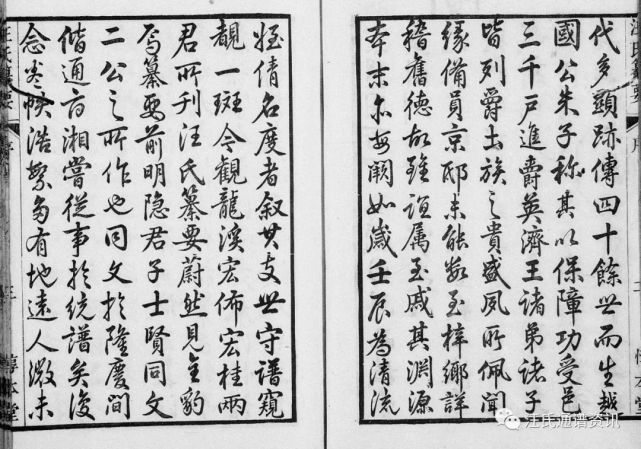 代多顯跡傳四十餘世而生越
國公朱子称其以保障功受邑
三千戶進爵英濟王諸弟諸子
皆列爵土族之貴盛夙所佩聞
緣備員京邸未能數至梓鄉詳
稽舊德故雖誼屬至戚其淵源
本末尔每闕如歲壬辰為清流
姪倩名度者叙其支世守譜窺
覩一斑今觀龍溪宏佈宏桂兩
君所刊汪氏纂要蔚然見全豹
焉纂要前明隐君子士賢同文
二公之所作也同文於隆慶間
偕通方湘嘗從事於統譜矣後
念卷帙浩繁多有地遠人微未
汪氏通谱资讯